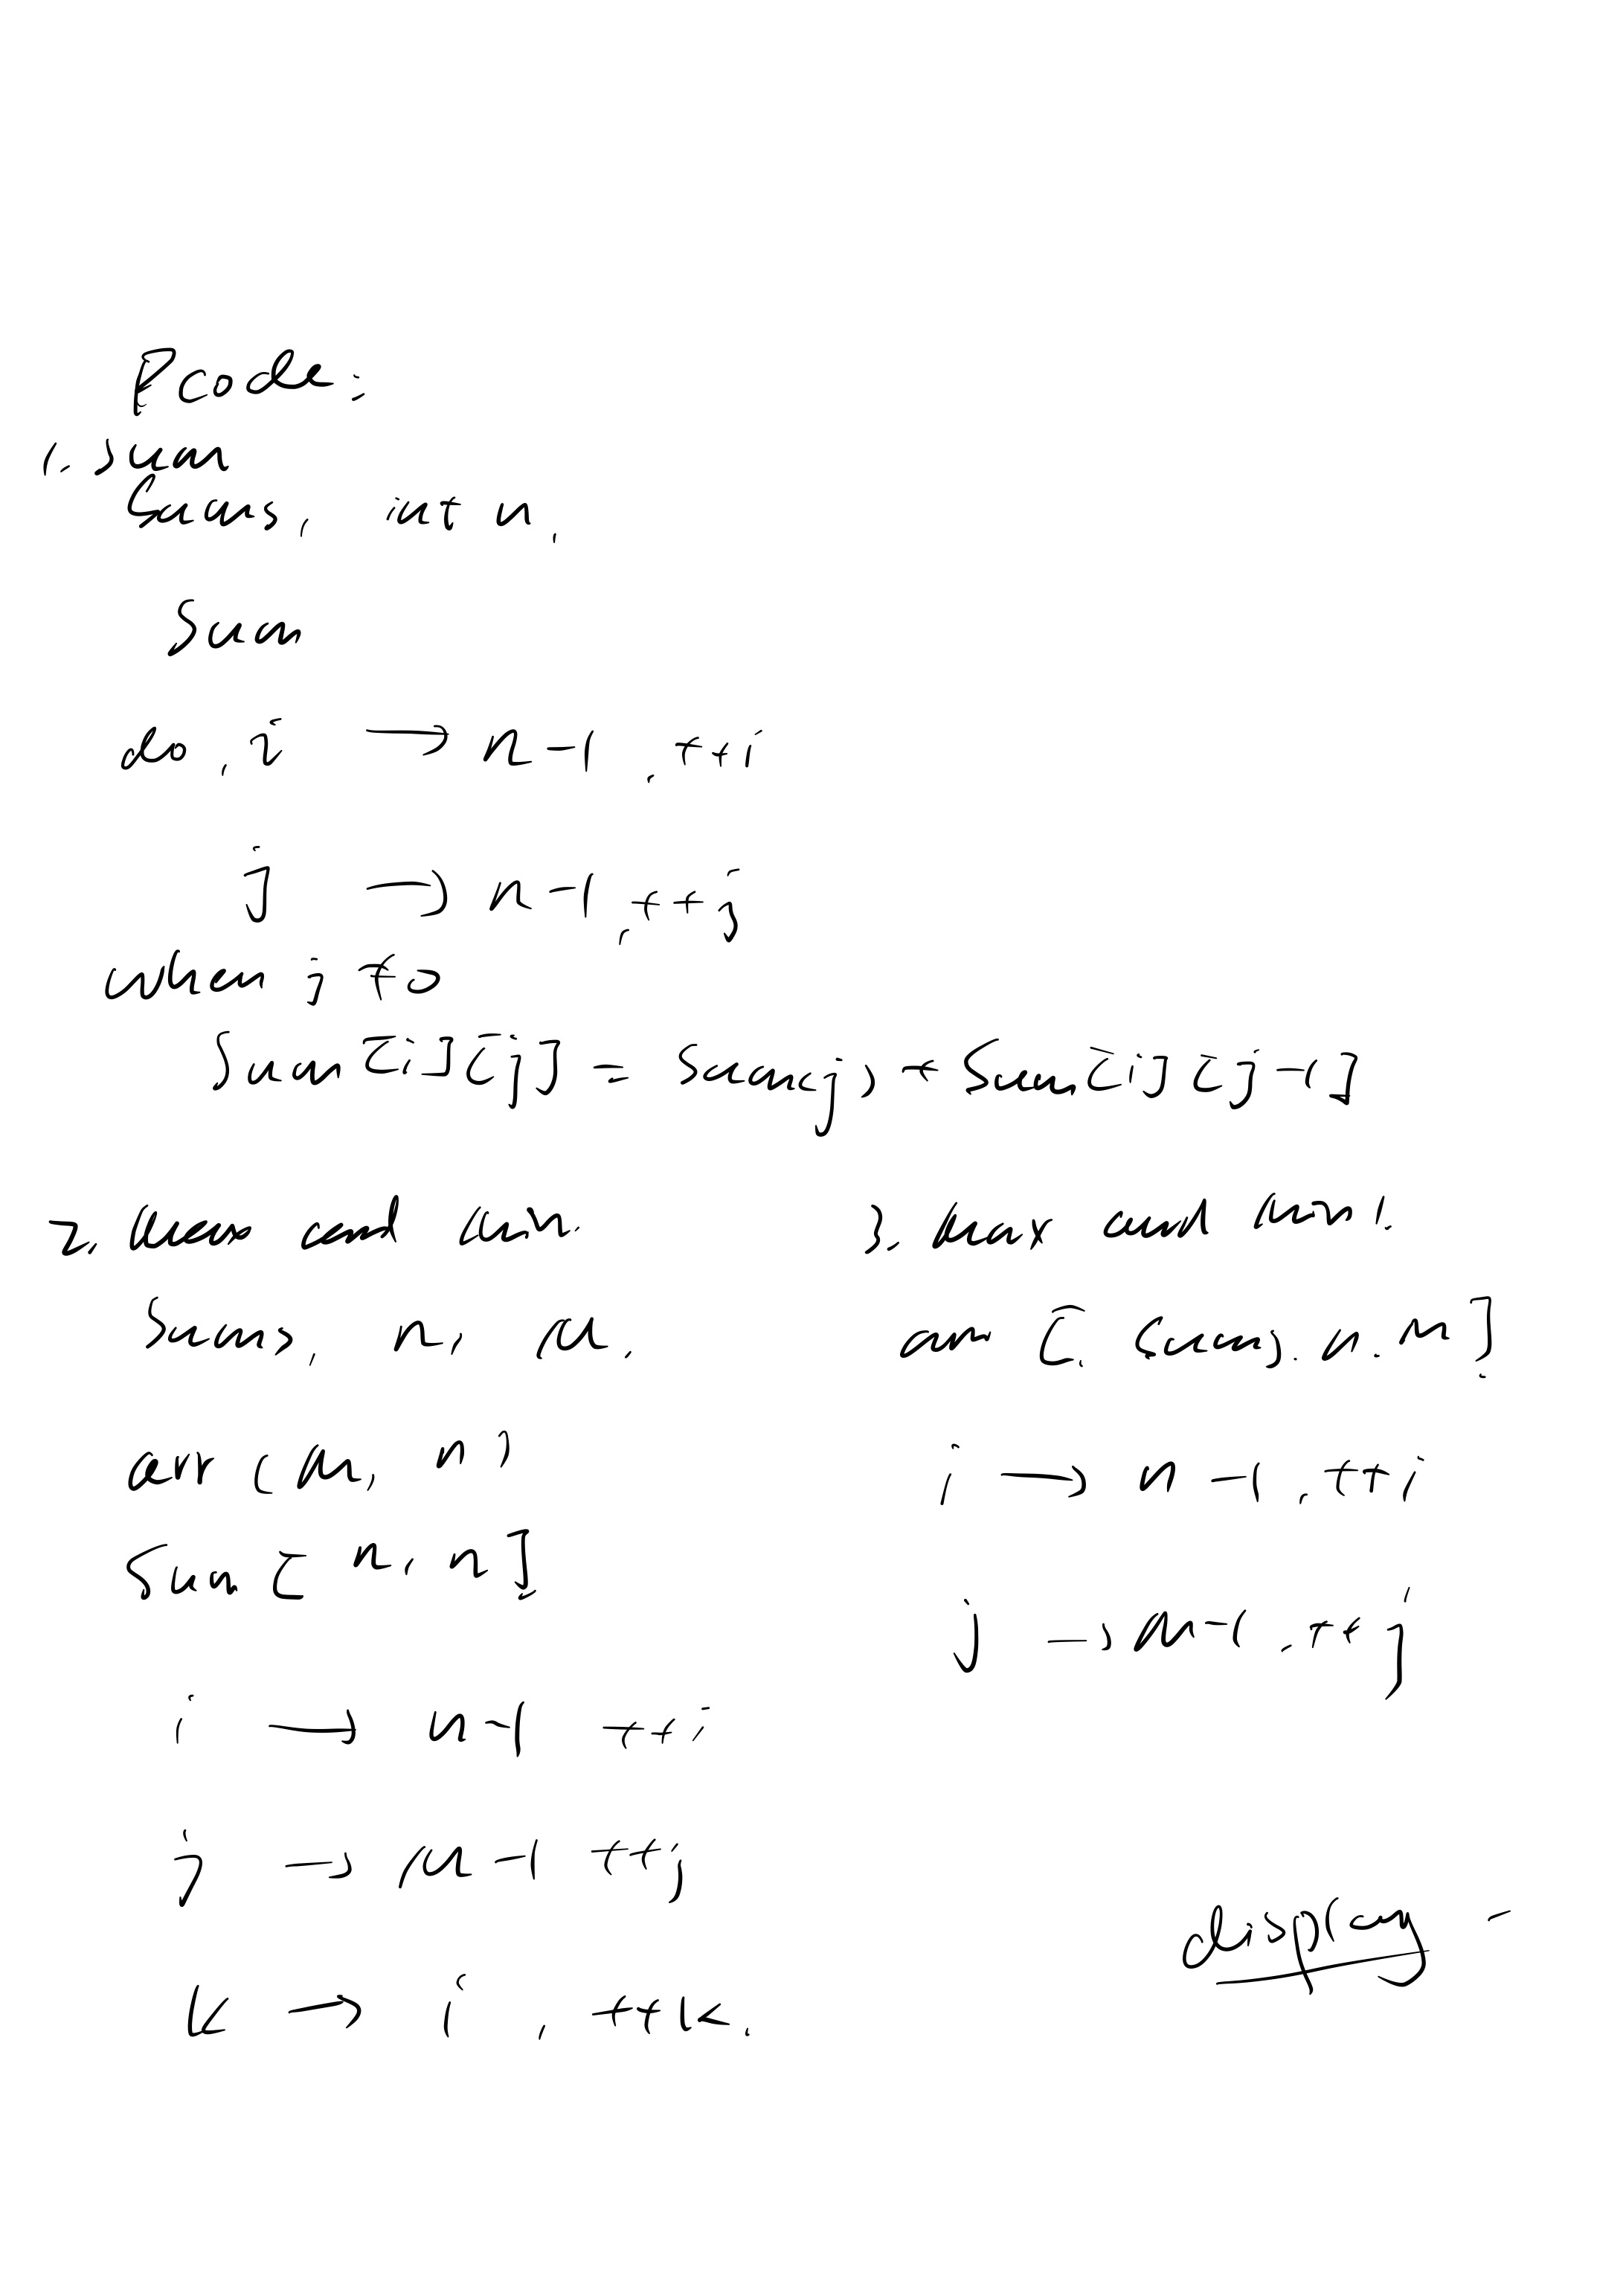 Pcode:
1. Sum
Sums, int n,
Sum
do, i → n-1, ++i
j → n-1, ++j
when j ≠ 0
Sum[i][j] = Sum(j) + Sum[i][j-1]
2. and min.
Sums, n, m.
arr (m, n)
Sum [n, n]
i → n-1 ++i
j → m-1 ++j
k → i, ++k.
3. max and min!
[ Sums, n, m ]
i → n-1, ++i
j → m-1, ++j
display -